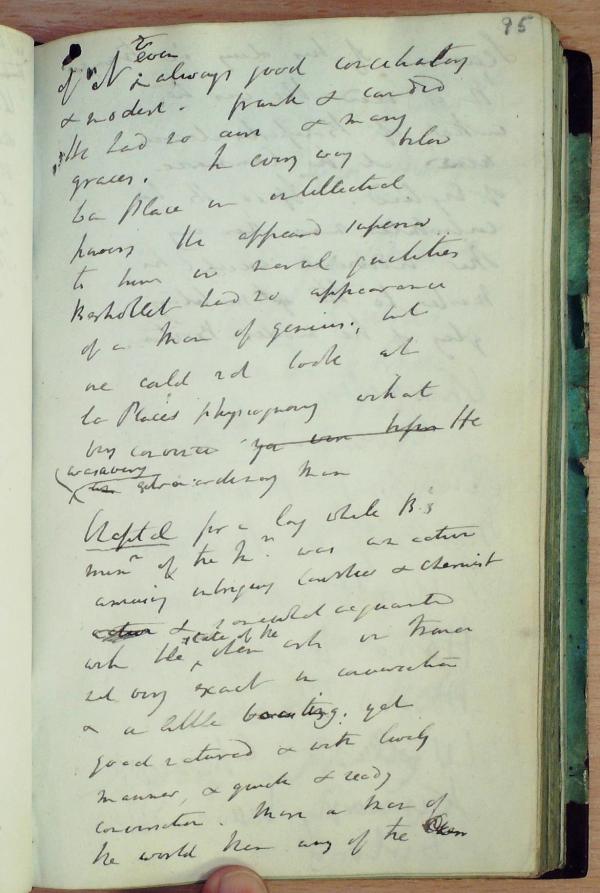 95
even
of it & always good conciliatory
& modest. frank & candid
He had no airs & many
graces. In every way below
La Place in intellectual
powers He appeared superior
to him in moral qualities
Berthollet had no appearance
of a Man of genius; but
one could not look at
La Place's physiognomy without
being convinced He
was a very
extraordinary Man
Chaptal for a long while B's
minr of the Inr was an active
amusing intriguing Courtier & chemist
& somewhat acquainted
state of the
with the chem arts in France
not very exact in conversation
& a little boasting; yet
good natured & with lively
manner, & quick & ready
conversation. More a man of
the world than any of the